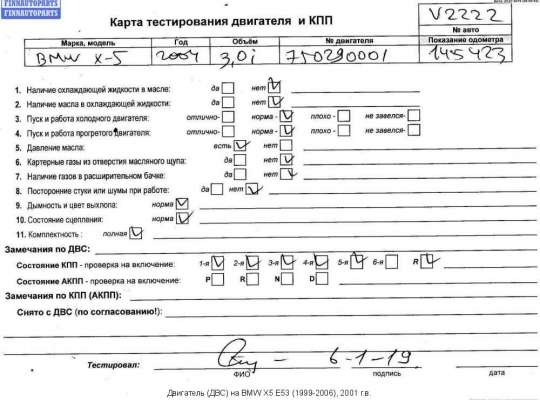 FINNAUTOPARTS
FINNAUTOPARTS
Карта тестирования двигателя и КПП
V2222
№ авто
Марка, модель Год Объём № двигателя Показание одометра
BMW X-5 2004 3,0i 750290001 145423
1. Наличие охлаждающей жидкости в масле: да нет
2. Наличие масла в охлаждающей жидкости: да нет
3. Пуск и работа холодного двигателя: отлично- норма - плохо - не завелся-
4. Пуск и работа прогретого двигателя: отлично- норма - плохо - не завелся-
5. Давление масла: есть нет
6. Картерные газы из отверстия масляного щупа: да нет
7. Наличие газов в расширительном бачке: да нет
8. Посторонние стуки или шумы при работе: да нет
9. Дымность и цвет выхлопа: норма
10. Состояние сцепления: норма
11. Комплектность: полная
Замечания по ДВС:
Состояние КПП - проверка на включение: 1-я 2-я 3-я 4-я 5-я 6-я R
Состояние АКПП - проверка на включение: P R N D
Замечания по КПП (АКПП):
Снято с ДВС (по согласованию!):
Тестировал: 6-1-19
ФИО подпись дата
Двигатель (ДВС) на BMW X5 E53 (1999-2006), 2001 г.в.